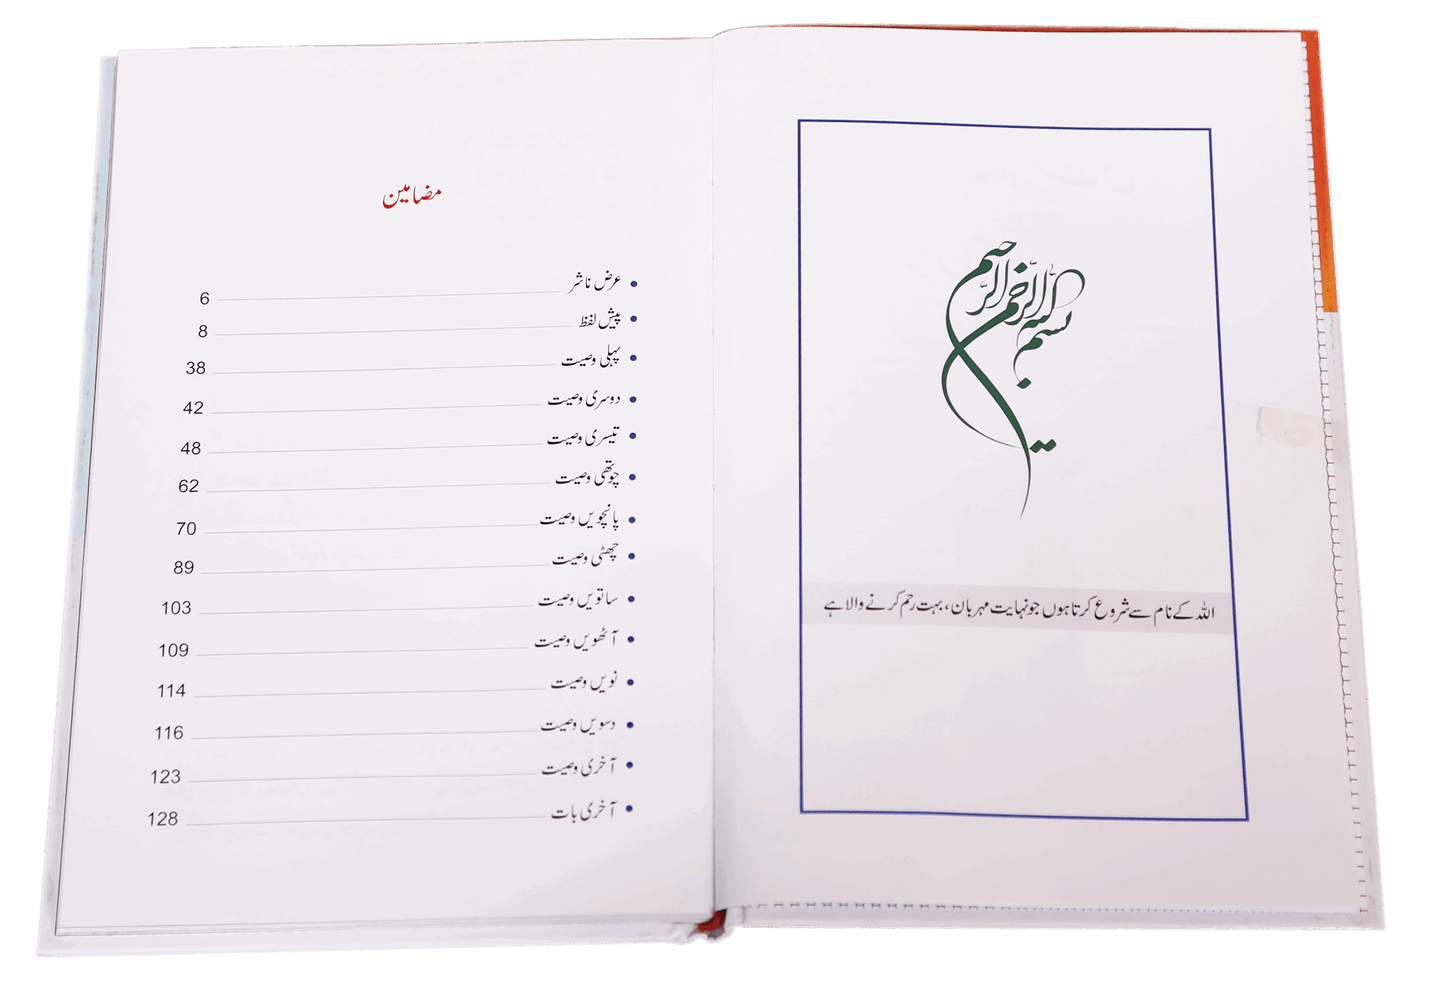 بسم الله الرحمن الرحيم
اللہ کے نام سے شروع کرتا ہوں جو نہایت مہربان، بہت رحم کرنے والا ہے
مضامین
• عرض ناشر 6
• پیش لفظ 8
• پہلی وصیت 38
• دوسری وصیت 42
• تیسری وصیت 48
• چوتھی وصیت 62
• پانچویں وصیت 70
• چھٹی وصیت 89
• ساتویں وصیت 103
• آٹھویں وصیت 109
• نویں وصیت 114
• دسویں وصیت 116
• آخری وصیت 123
• آخری بات 128